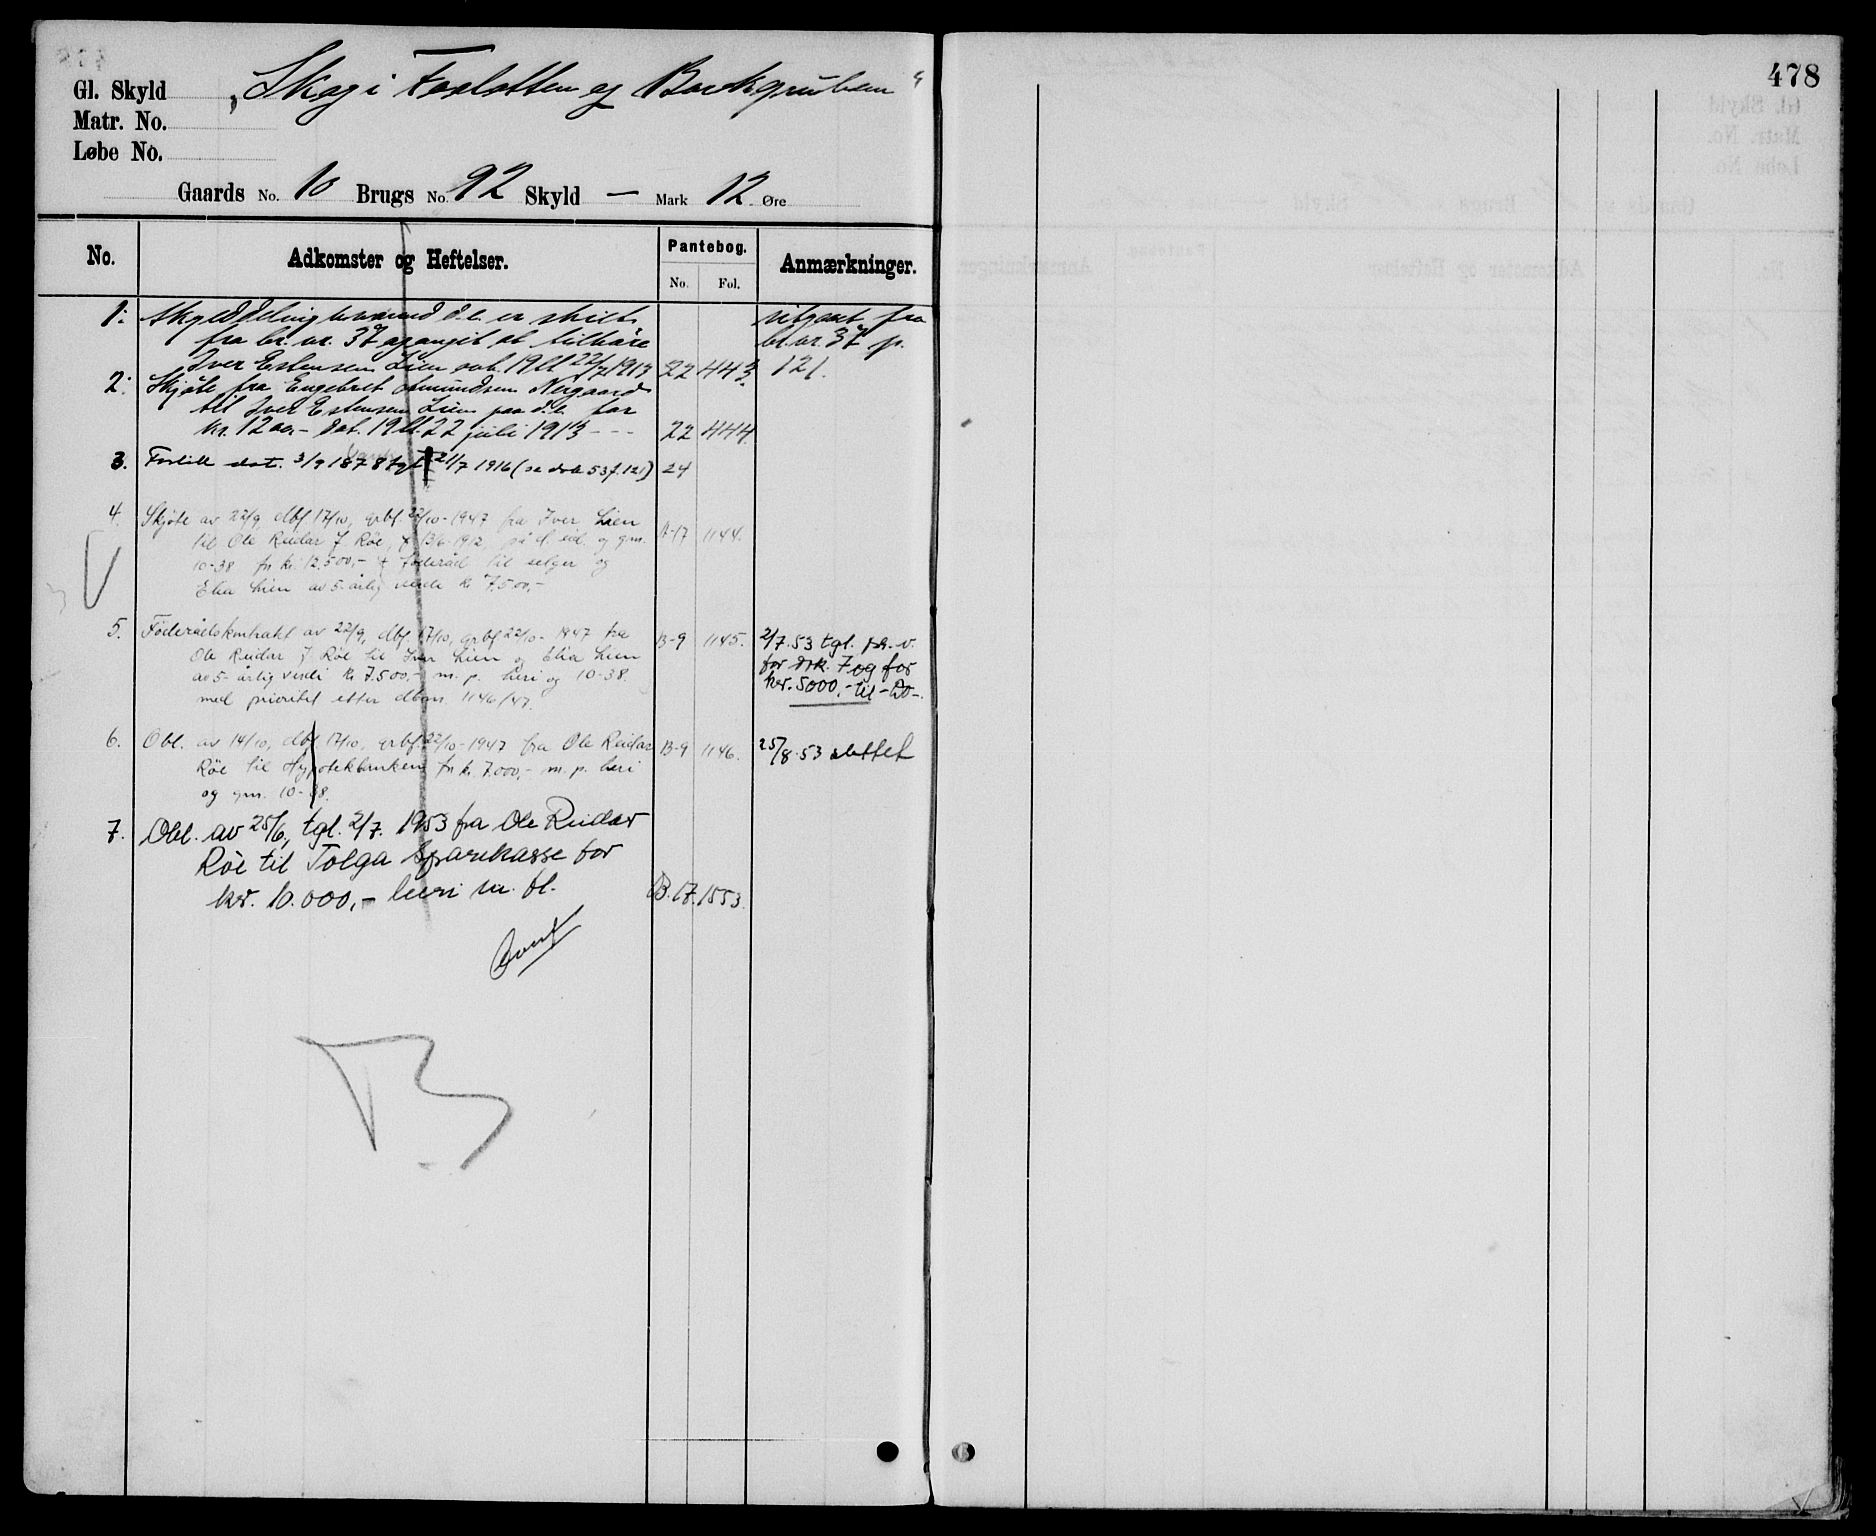 478
Gl. Skyld
Matr. No.
Løbe No.
„Skog i Foslotten og Barkgruben“
Gaards No. 10 Brugs No. 92 Skyld — Mark 12 Øre
No. Adkomster og Heftelser. Pantebog. Anmærkninger.
No. Fol.
1. Skylddeling hvorved d. e. er skilt utgaat fra
fra br. nr. 37 og angit at tilhøre br. nr. 37 p.
Iver Estensen Lien dat. 19 tl. 22/7 1913 22 443 121.
2. Skjøte fra Engebret Amundsen Neigaard
til Iver Estensen Lien paa d. e. for
kr. 1200.- dat. 19 tl. 22 juli 1913 - - - 22 444.
3. Forlik dat. 3/9 1878 tgl. 21/7 1916 (se dok 53 f. 121) 24
4. Skjøte av 22/9, dbf. 17/10, grbf. 22/10-1947 fra Iver Lien
til Ole Reidar J. Røe, f. 13/6-1912, på d. eid. og gnr. A-17 1144.
10-38 for kr. 12.500,- + føderåd til selger og
Elia Lien av 5-årlig verdi kr 7.500,-
5. Føderådskontrakt av 22/9, dbf. 17/10, grbf 22/10-1947 fra B-9 1145. 2/7.53 tgl. pr. v.
Ole Reidar J Røe til Iver Lien og Elia Lien for dok. 7 og for
av 5-årlig verdi kr 7.500,- m. p. heri og 10-38. kr. 5000,- til -do-.
med prioritet etter dbnr. 1146/47.
6. Obl. av 14/10, dbf 17/10, grbf. 22/10-1947 fra Ole Reidar B-9 1146. 25/8.53 slettet
Røe til Hypotekbanken for kr. 7.000,- m. p. heri
og gnr. 10-38.
7. Obl. av 25/6, tgl. 2/7. 1953 fra Ole Reidar
Røe til Tolga Sparekasse for
kr. 10.000,- heri m. fl. B.17. 1553.